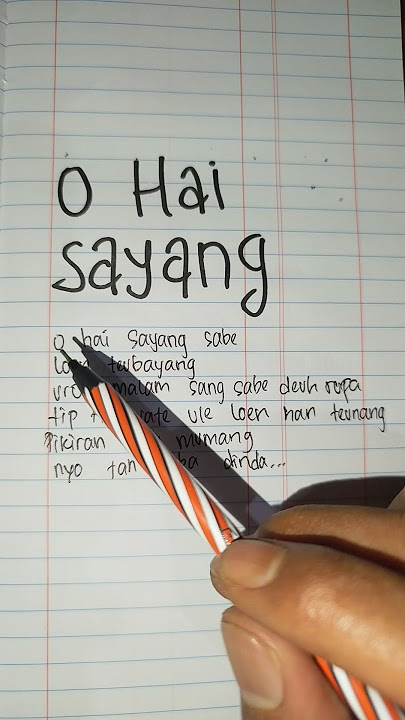 O Hai
Sayang
O hai sayang sabe
terbayang
malam sang sabe deuh rupa
tip ate ule loen han teunang
Pikiran mumang
nyo tan dinda...